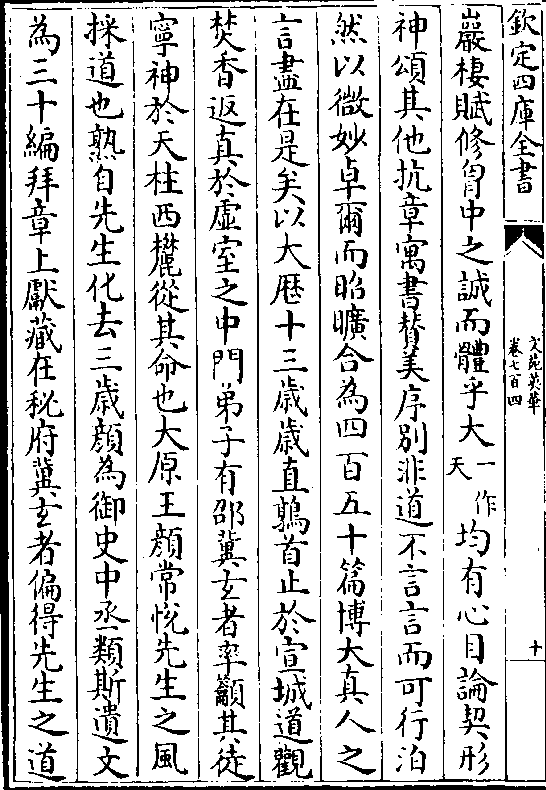 欽定四庫全書
文苑英華
卷七百四
十
巖棲賦修胷中之誠而體乎大一作天均有心目論契形
神頌其他抗章寓書賛美序別非道不言言而可行泊
然以微妙卓爾而昭曠合為四百五十篇博大真人之
言盡在是矣以大厯十三歳歳直鶉首止於宣城道觀
焚香返真於虛室之中門弟子有邵冀𤣥者率籲其徒
寧神於天柱西麓從其命也大原王顔常悦先生之風
採道也熟自先生化去三歳顔為御史中丞類斯遺文
為三十編拜章上獻藏在秘府冀𤣥者偏得先生之道